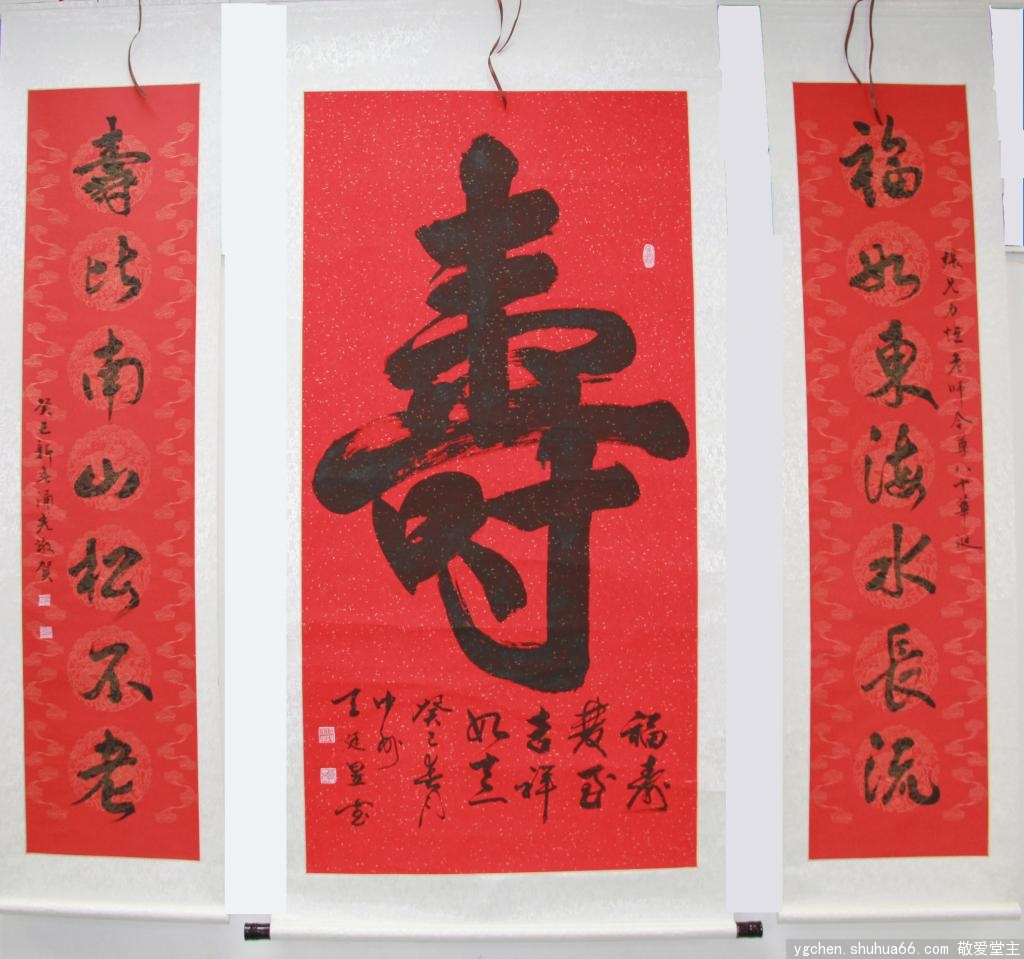 福如東海水長流
張兄力恒老师令尊八十華誕
壽
福壽
雙至
吉祥
如意
癸巳春月
中州
壽比南山松不老
癸巳新春涌光敬賀
ygchen.shuhua66.com 敬爱堂主